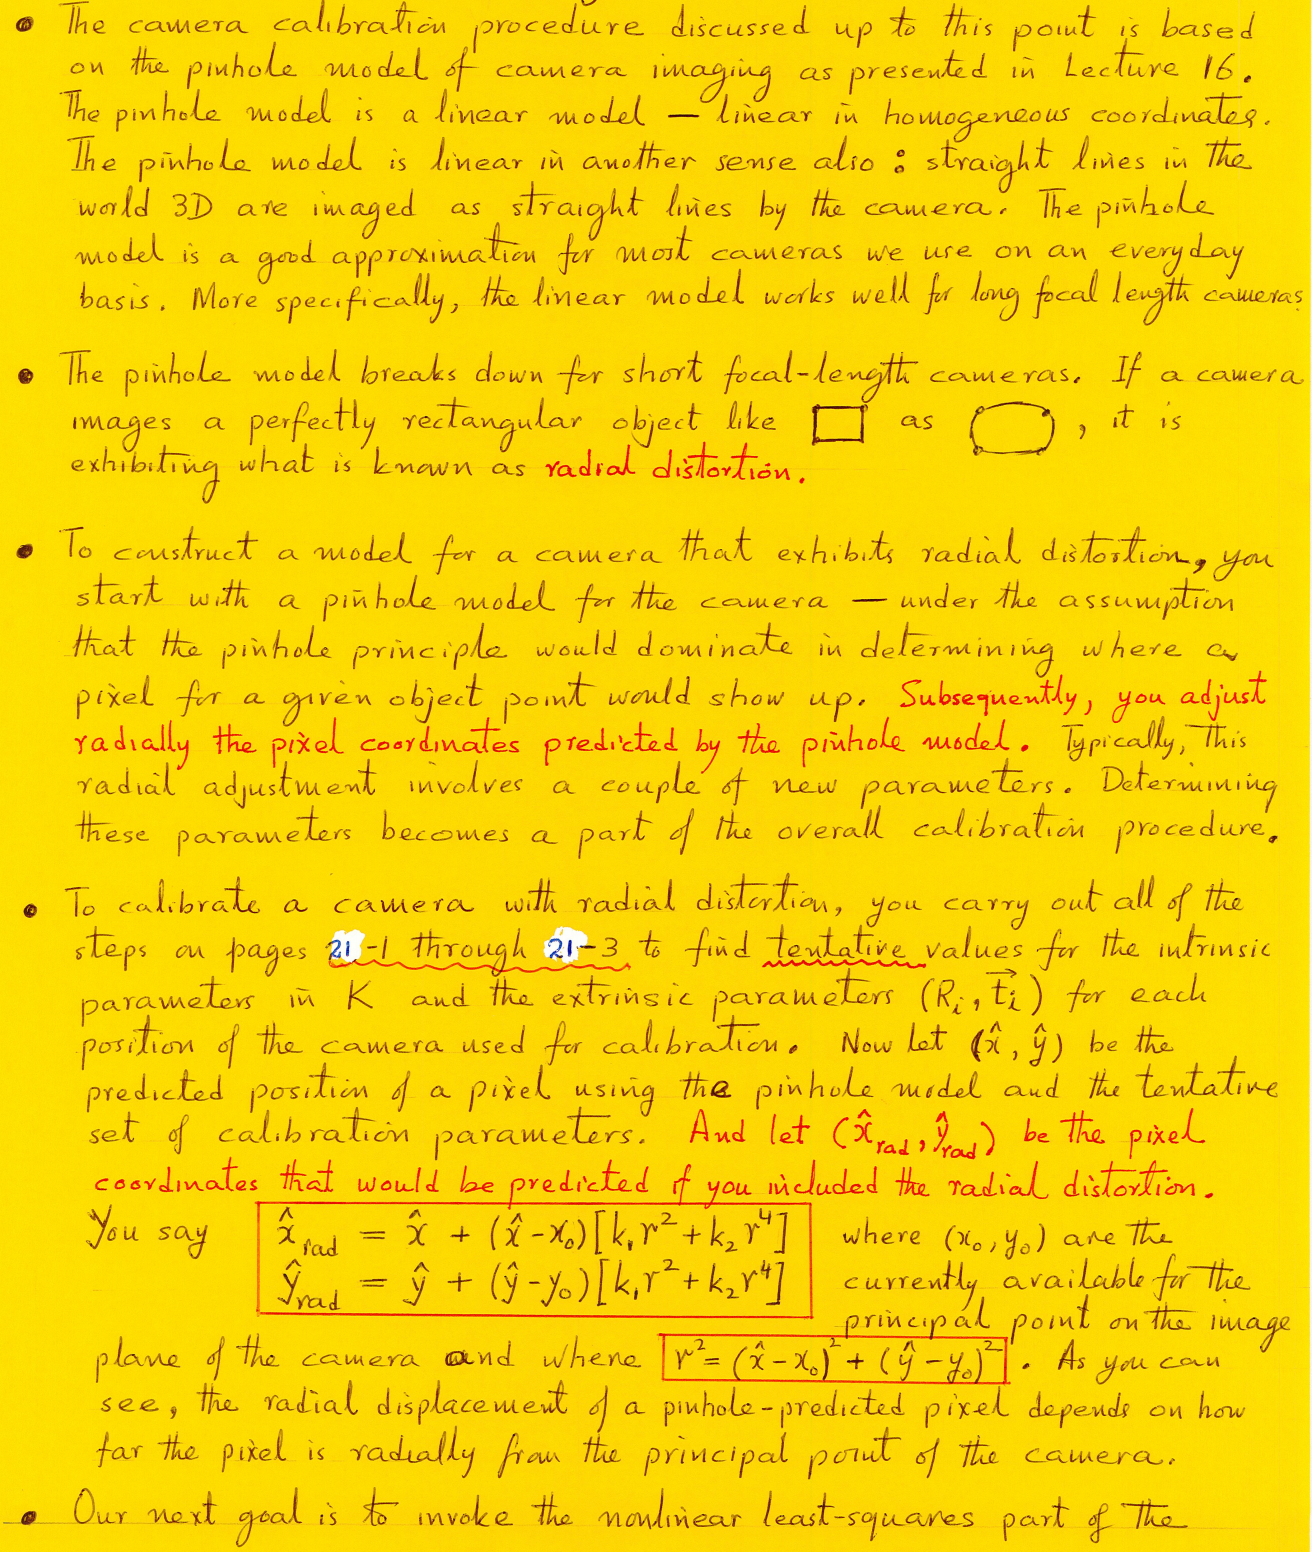 • The camera calibration procedure discussed up to this point is based
on the pinhole model of camera imaging as presented in Lecture 16.
The pinhole model is a linear model — linear in homogeneous coordinates.
The pinhole model is linear in another sense also : straight lines in the
world 3D are imaged as straight lines by the camera. The pinhole
model is a good approximation for most cameras we use on an everyday
basis. More specifically, the linear model works well for long focal length cameras
• The pinhole model breaks down for short focal-length cameras. If a camera
images a perfectly rectangular object like as , it is
exhibiting what is known as radial distortion.
• To construct a model for a camera that exhibits radial distortion, you
start with a pinhole model for the camera — under the assumption
that the pinhole principle would dominate in determining where a
pixel for a given object point would show up. Subsequently, you adjust
radially the pixel coordinates predicted by the pinhole model. Typically, this
radial adjustment involves a couple of new parameters. Determining
these parameters becomes a part of the overall calibration procedure.
• To calibrate a camera with radial distortion, you carry out all of the
steps on pages 21-1 through 21-3 to find tentative values for the intrinsic
parameters in K and the extrinsic parameters (Rᵢ, t⃗ᵢ) for each
position of the camera used for calibration. Now let (x̂, ŷ) be the
predicted position of a pixel using the pinhole model and the tentative
set of calibration parameters. And let (x̂_rad, ŷ_rad) be the pixel
coordinates that would be predicted if you included the radial distortion.
You say x̂_rad = x̂ + (x̂-x₀)[k₁r²+k₂r⁴] where (x₀, y₀) are the
ŷ_rad = ŷ + (ŷ-y₀)[k₁r²+k₂r⁴] currently available for the
principal point on the image
plane of the camera and where r² = (x̂-x₀)² + (ŷ-y₀)² . As you can
see, the radial displacement of a pinhole-predicted pixel depends on how
far the pixel is radially from the principal point of the camera.
• Our next goal is to invoke the nonlinear least-squares part of the